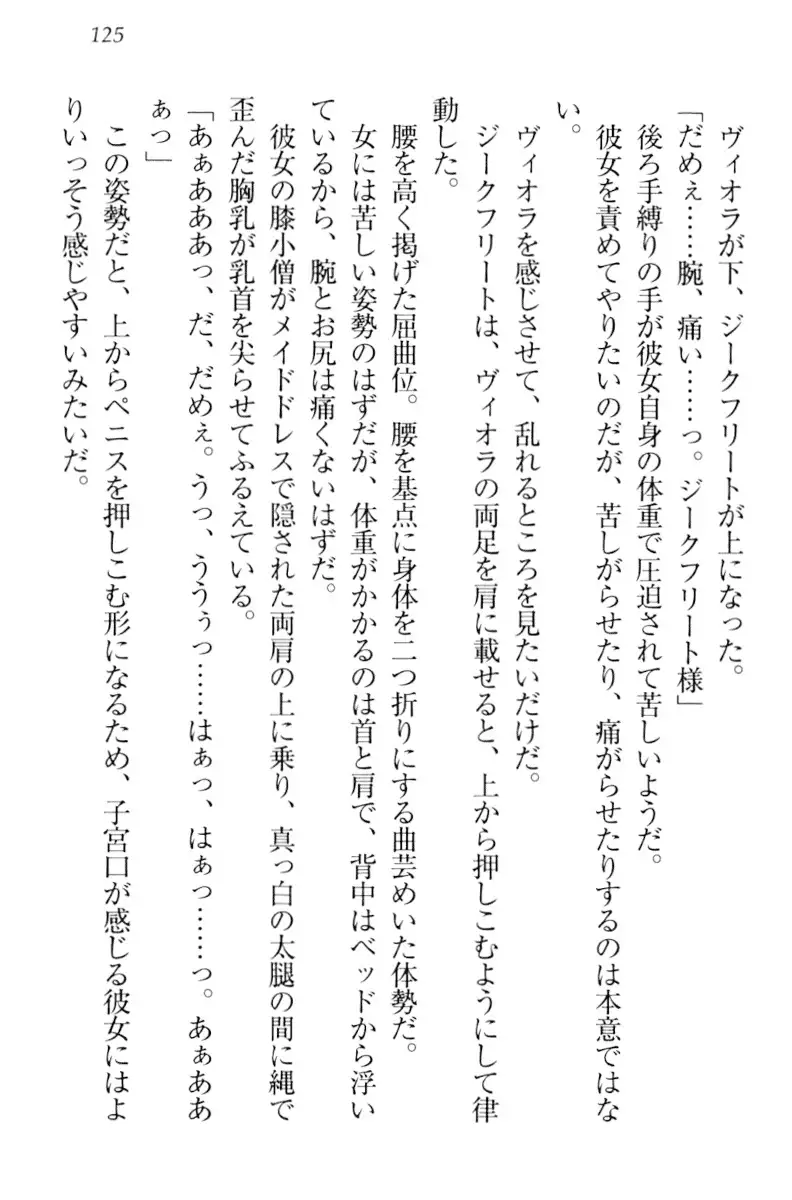 125
ヴィオラが下、ジークフリートが上になった。
「だめぇ……腕、痛い……っ。ジークフリート様」
後ろ手縛りの手が彼女自身の体重で圧迫されて苦しいようだ。
彼女を責めてやりたいのだが、苦しがらせたり、痛がらせたりするのは本意ではな
い。
ヴィオラを感じさせて、乱れるところを見たいだけだ。
ジークフリートは、ヴィオラの両足を肩に載せると、上から押しこむようにして律
動した。
腰を高く掲げた屈曲位。腰を基点に身体を二つ折りにする曲芸めいた体勢だ。
女には苦しい姿勢のはずだが、体重がかかるのは首と肩で、背中はベッドから浮い
ているから、腕とお尻は痛くないはずだ。
彼女の膝小僧がメイドドレスで隠された両肩の上に乗り、真っ白の太腿の間に縄で
歪んだ胸乳が乳首を尖らせてふるえている。
「あぁあああっ、だ、だめぇ。うっ、ううぅっ……はぁっ、はぁっ……っ。あぁああ
ぁっ」
この姿勢だと、上からペニスを押しこむ形になるため、子宮口が感じる彼女にはよ
りいっそう感じやすいみたいだ。